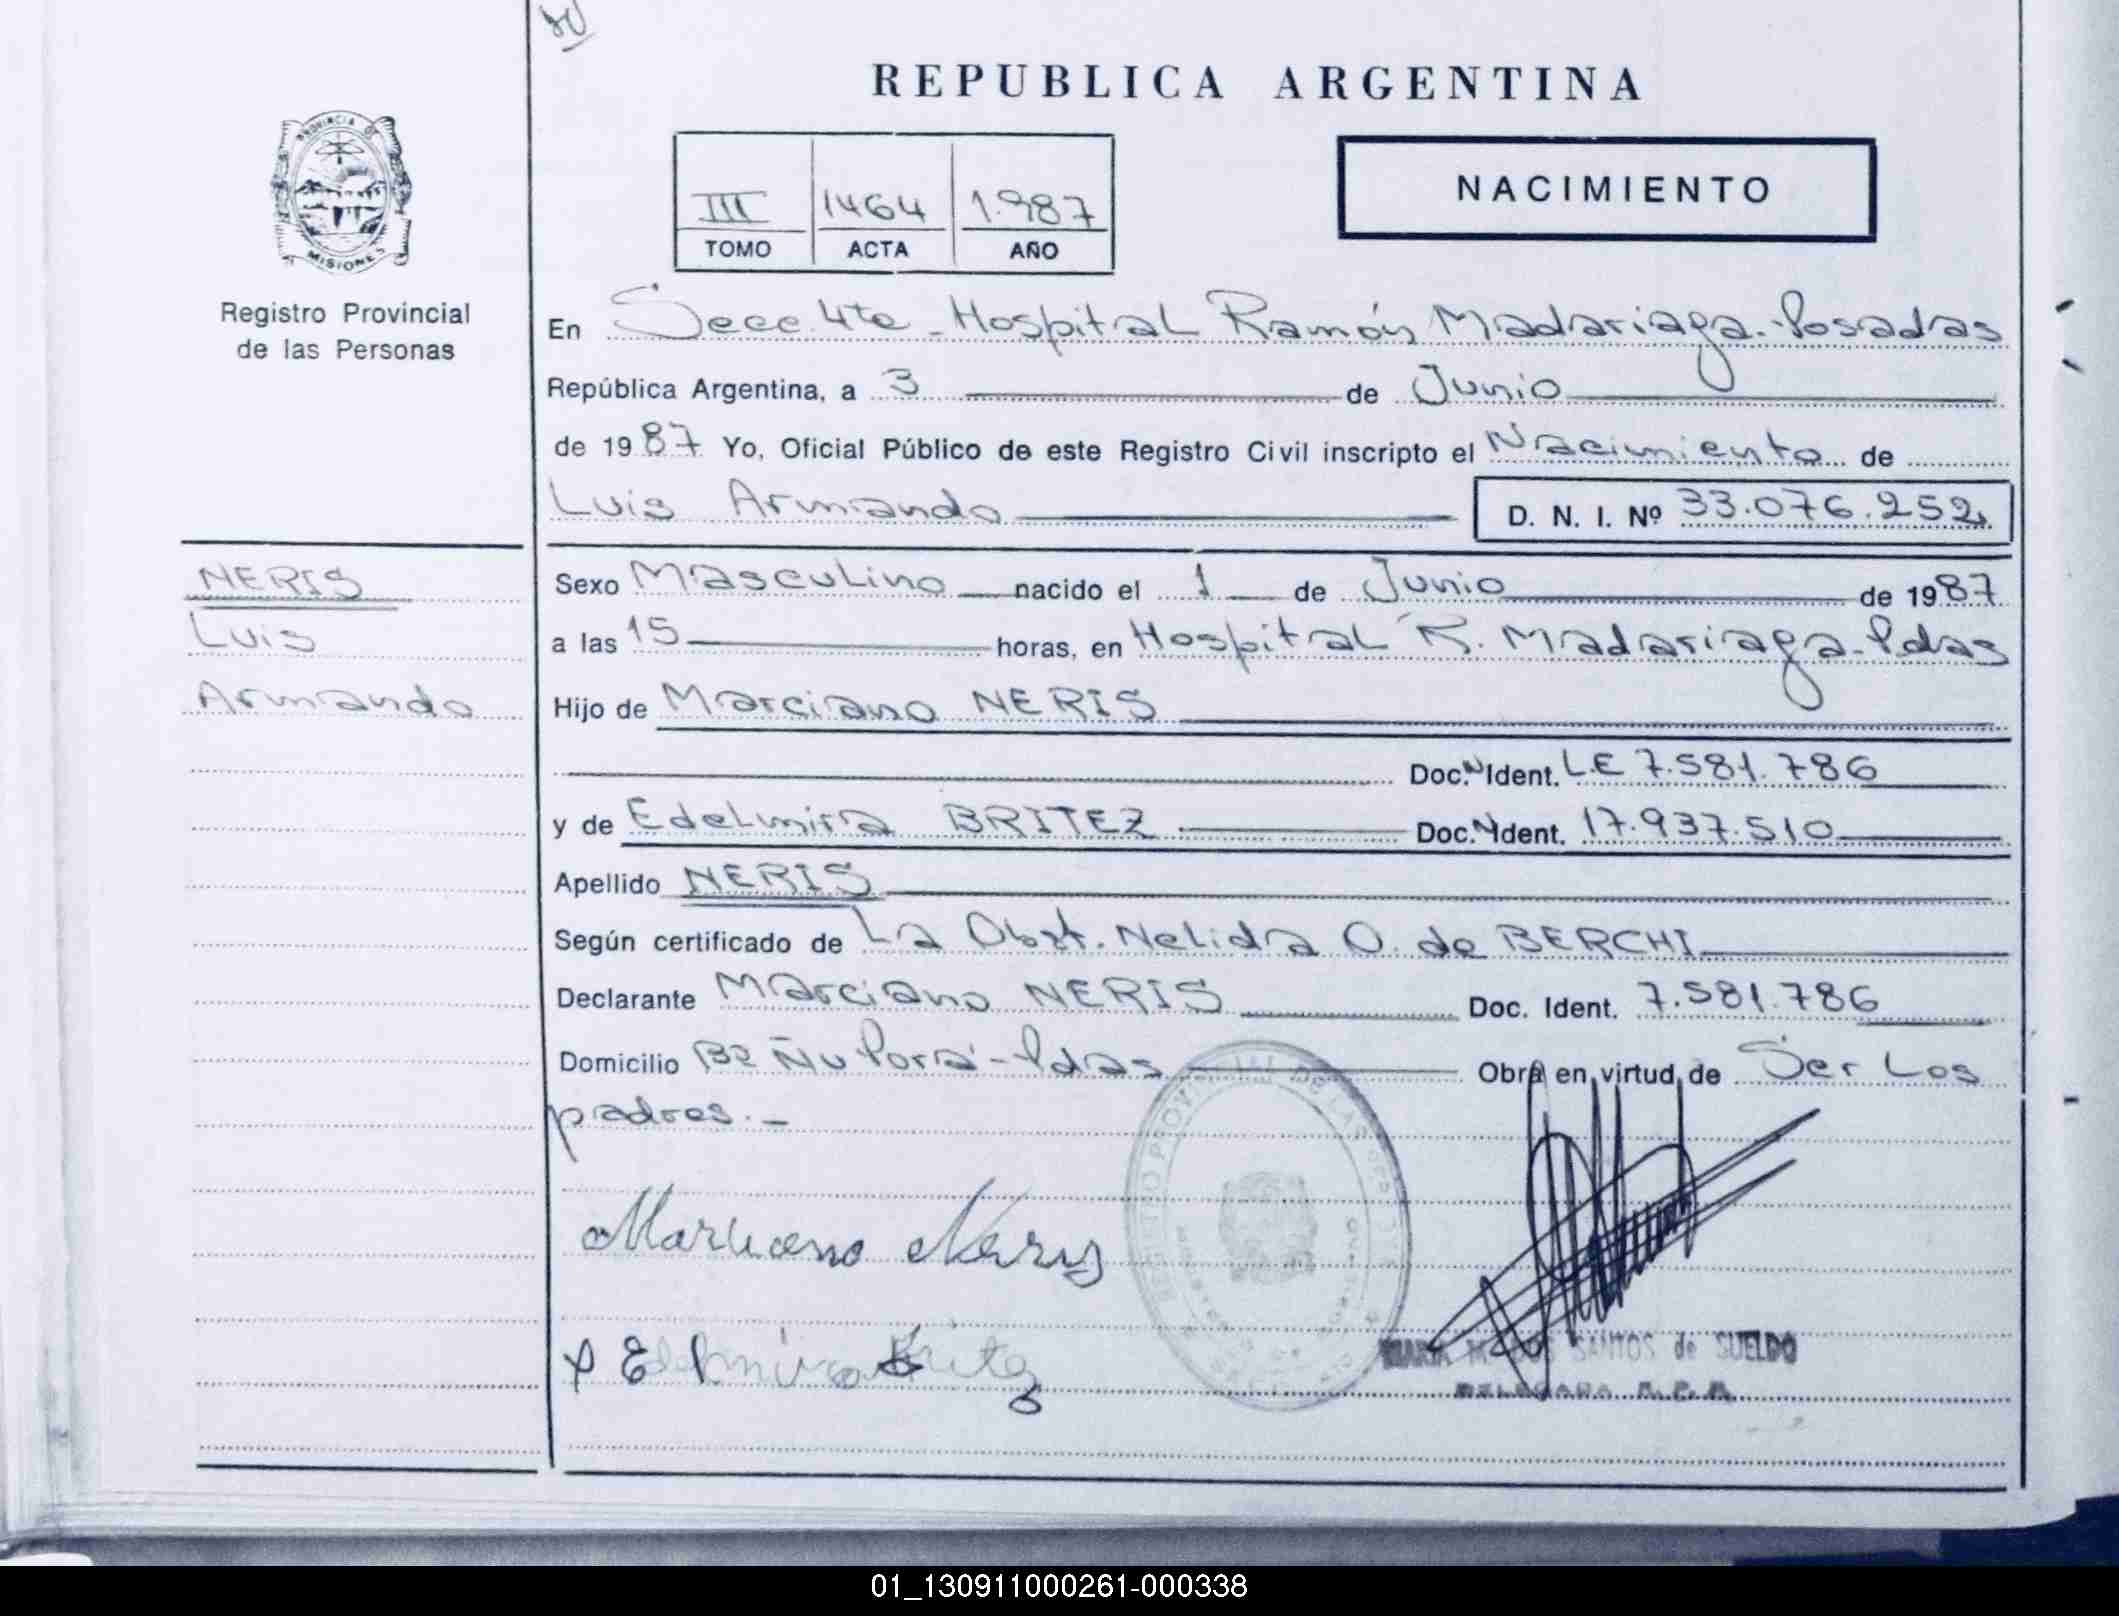 REPUBLICA ARGENTINA
PROVINCIA DE
MISIONES
Registro Provincial
de las Personas
III 1464 1.987
TOMO ACTA AÑO
NACIMIENTO
En Secc. 4ta - Hospital Ramón Madariaga - Posadas
República Argentina, a 3 de Junio
de 1987 Yo, Oficial Público de este Registro Civil inscripto el Nacimiento de
Luis Armando D. N. I. Nº 33.076.252
NERIS
Luis
Armando
Sexo Masculino nacido el 1 de Junio de 1987
a las 15 horas, en Hospital R. Madariaga - Pdas
Hijo de Marciano NERIS
Doc. N Ident. L.E 7.581.786
y de Edelmira BRITEZ Doc. N Ident. 17.937.510
Apellido NERIS
Según certificado de La Obst. Nelida O. de BERCHI
Declarante Marciano NERIS Doc. Ident. 7.581.786
Domicilio Bº Ñu Porá - Pdas Obra en virtud de Ser Los
padres. -
Marciano Neris
x Edelmira Britez
MARIA M. DOS SANTOS de SUELDO
DELEGADA R. P. P.
01_130911000261-000338